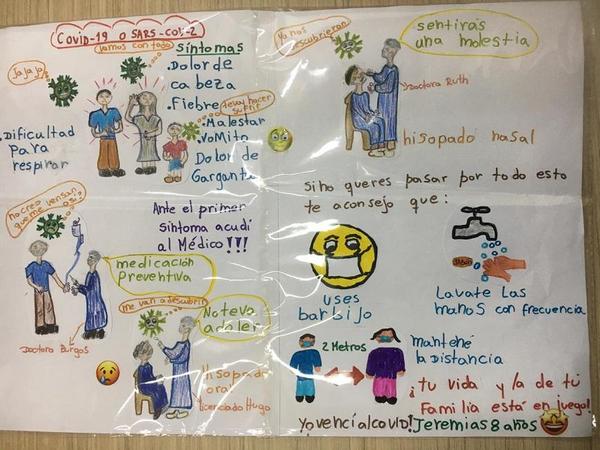 Covid-19 o SARS-COV-2
vamos con todo
síntomas
Dolor de
cabeza
.Fiebre
.Malestar
.Vomito
Dolor de
Garganta
Ja Ja Ja
.Dificultad
para
respirar
Ante el primer
sintoma acudí
al Médico!!!
medicación
preventiva
Doctora Burgos
me van a descubrir
No te va
a doler
Hisopado
oral
licenciado Hugo
Ya nos
descubrieron
sentirás
una molestia
Doctora Ruth
hisopado nasal
Si no queres pasar por todo esto
te aconsejo que:
uses
barbijo
JABON
Lavate Las
manos con frecuencia
2 Metros
mantené
la Distancia
¡tu vida y la de tu
Familia está en juego!
Yo vencí al covid! Jeremias 8 años